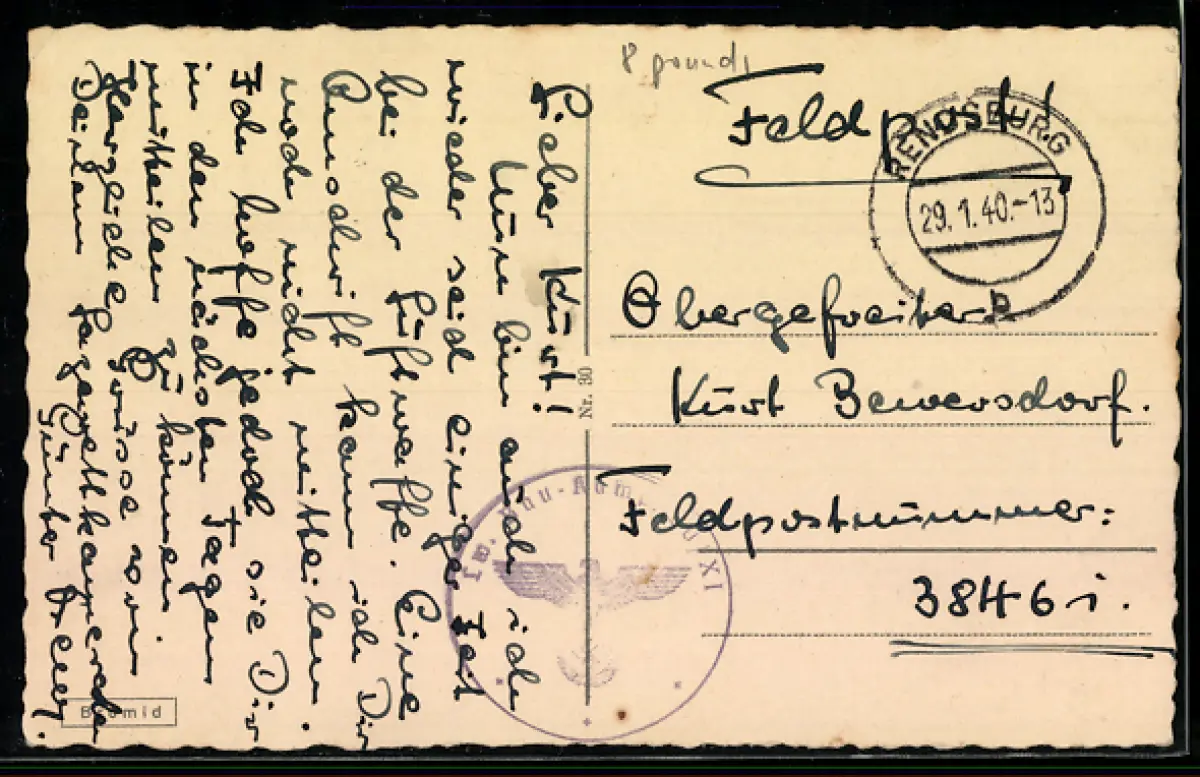 8 pounds
Feldpost!
RENDSBURG
29.1.40.-13
Obergefreiter
Kurt Bewersdorf.
Feldpostnummer:
38461.
Nr. 30
Lw. Bau-Komp. XI
Lieber Kurt!
Nun bin auch ich
wieder seid einiger Zeit
bei der Luftwaffe. Eine
Anschrift kann ich Dir
noch nicht mitteilen.
Ich hoffe jedoch sie Dir
in den nächsten Tagen
mitteilen zu können.
Herzliche Grüsse von
Deinem Lazarettkamerad
Günter
Bromid